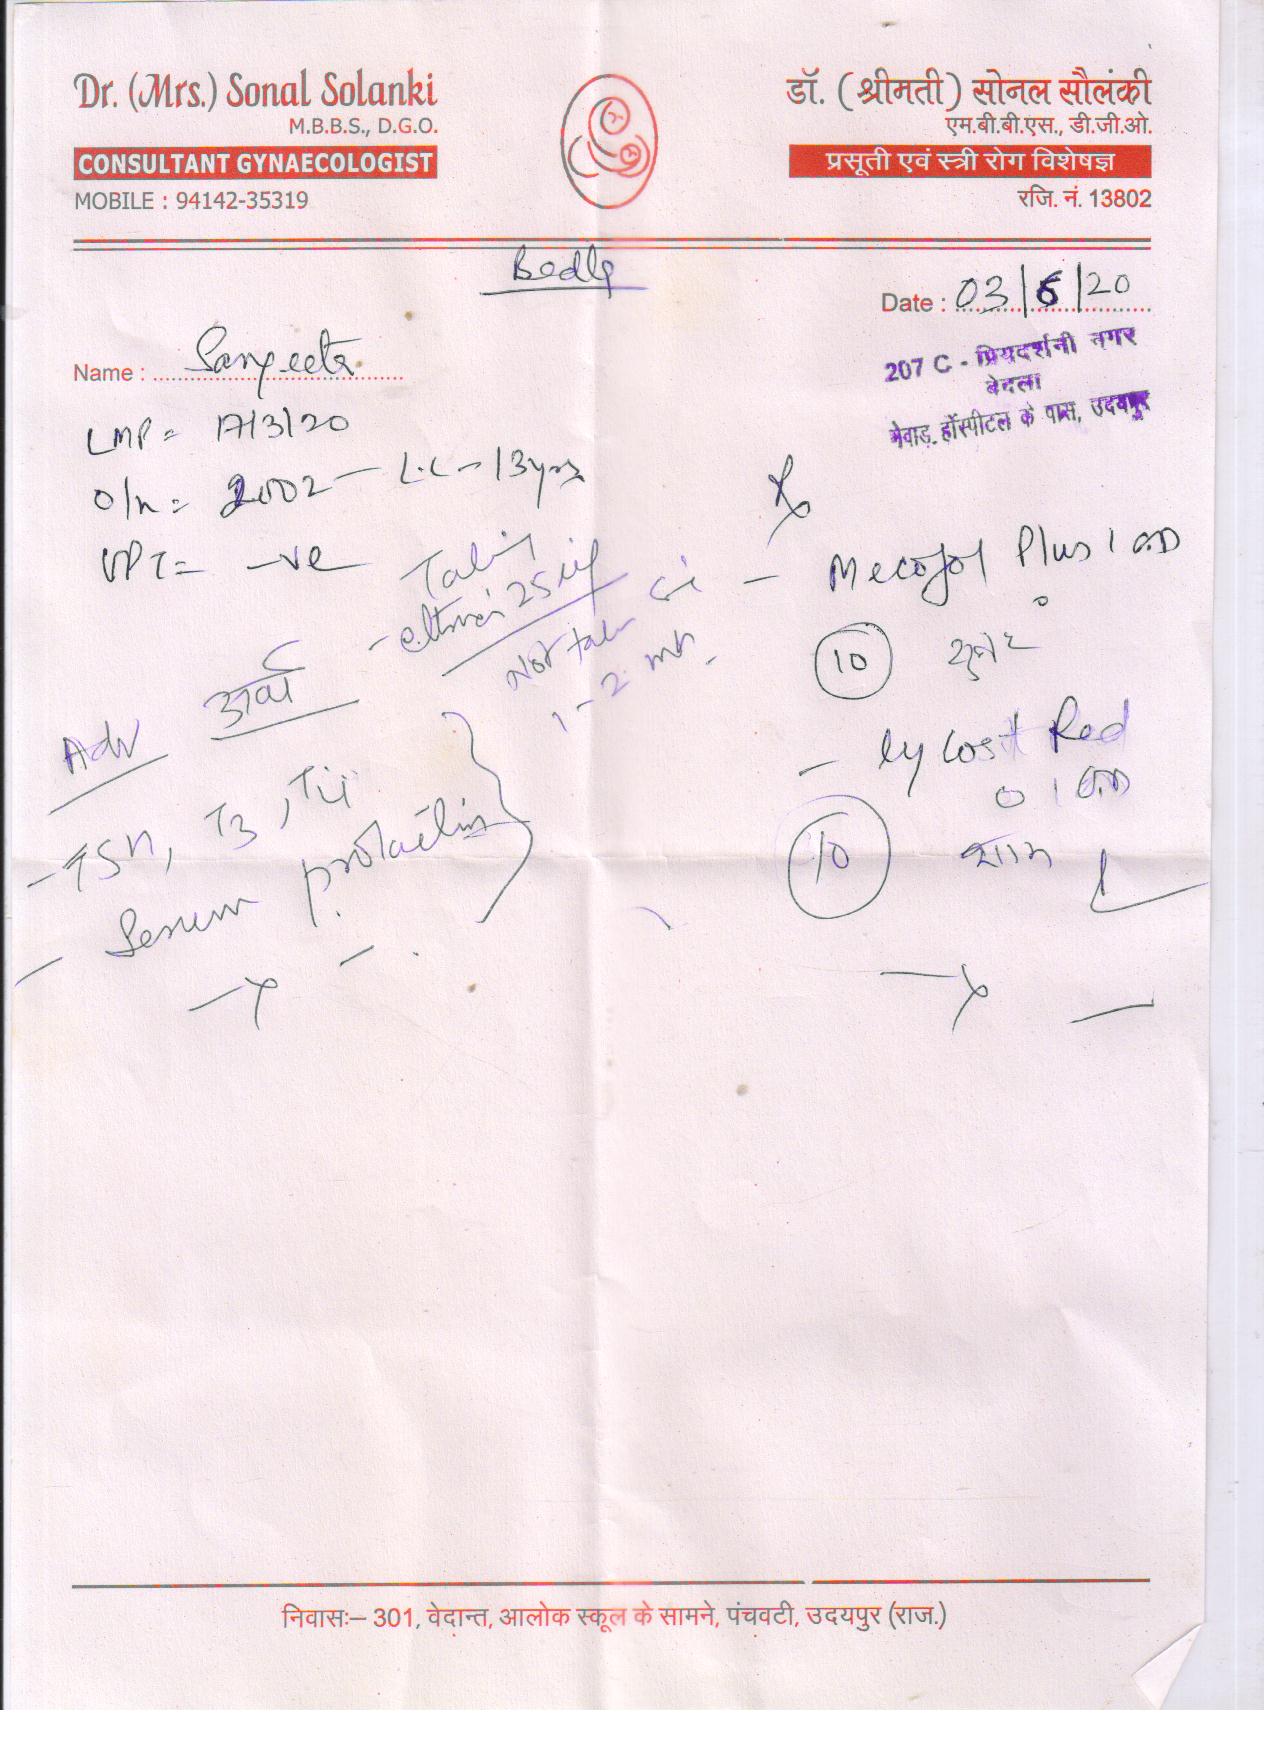 Dr. (Mrs.) Sonal Solanki
M.B.B.S., D.G.O.
CONSULTANT GYNAECOLOGIST
MOBILE : 94142-35319
डॉ. (श्रीमती) सोनल सौलंकी
एम.बी.बी.एस., डी.जी.ओ.
प्रसूती एवं स्त्री रोग विशेषज्ञ
रजि. नं. 13802
Bedla
Date : 03/6/20
207 C - प्रियदर्शनी नगर
बेदला
मेवाड़ हॉस्पीटल के पास, उदयपुर
Name : Sangeeta
LMP = 17/3/20
O/h = 2002 - L.C - 13yrs
UPT = -ve
Taking
25
Not taken
1-2 mth.
Adv
- TSH, T3, T4
- Serum prolactin
Rx
- Mecofol Plus 1 OD
10 सुबह
- lycost Red
1 OD
10 शाम
निवासः– 301, वेदान्त, आलोक स्कूल के सामने, पंचवटी, उदयपुर (राज.)